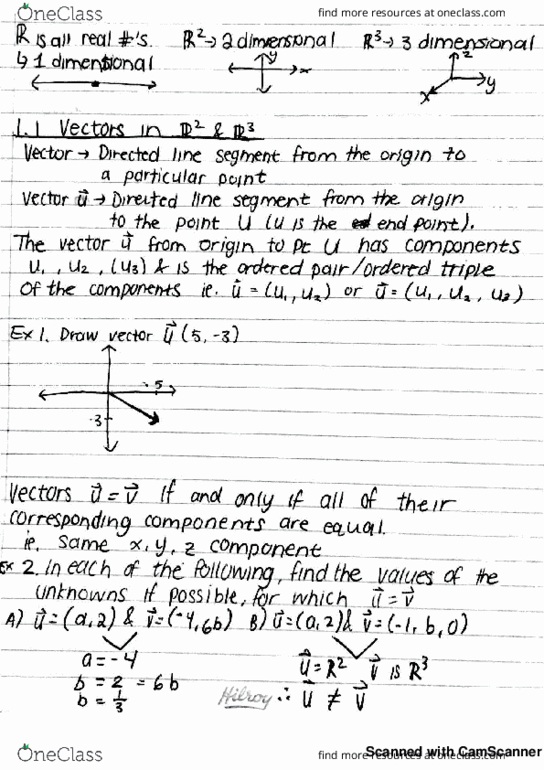 OneClass
find more resources at oneclass.com
ℝ is all real #'s.
ℝ² → 2 dimensional
ℝ³ → 3 dimensional
↳ 1 dimensional
y
x
z
y
x
1.1 Vectors in ℝ² & ℝ³
Vector → Directed line segment from the origin to
a particular point
Vector u⃗ → Directed line segment from the origin
to the point U (U is the end point).
The vector u⃗ from origin to pt U has components
u₁, u₂, (u₃) & is the ordered pair/ordered triple
of the components ie. u⃗ = (u₁, u₂) or u⃗ = (u₁, u₂, u₃)
Ex 1. Draw vector u⃗ (5, -3)
5
-3
Vectors u⃗ = v⃗ if and only if all of their
corresponding components are equal.
ie. same x, y, z component
Ex 2. In each of the following, find the values of the
unknowns if possible, for which u⃗ = v⃗
A) u⃗ = (a, 2) & v⃗ = (-4, 6b) B) u⃗ = (a, 2) & v⃗ = (-1, b, 0)
a = -4
u⃗ = R² v⃗ is R³
b = 2 = 6b
b = 1/3
Hilroy
∴ u⃗ ≠ v⃗
Scanned with CamScanner
OneClass
find more resources at oneclass.com